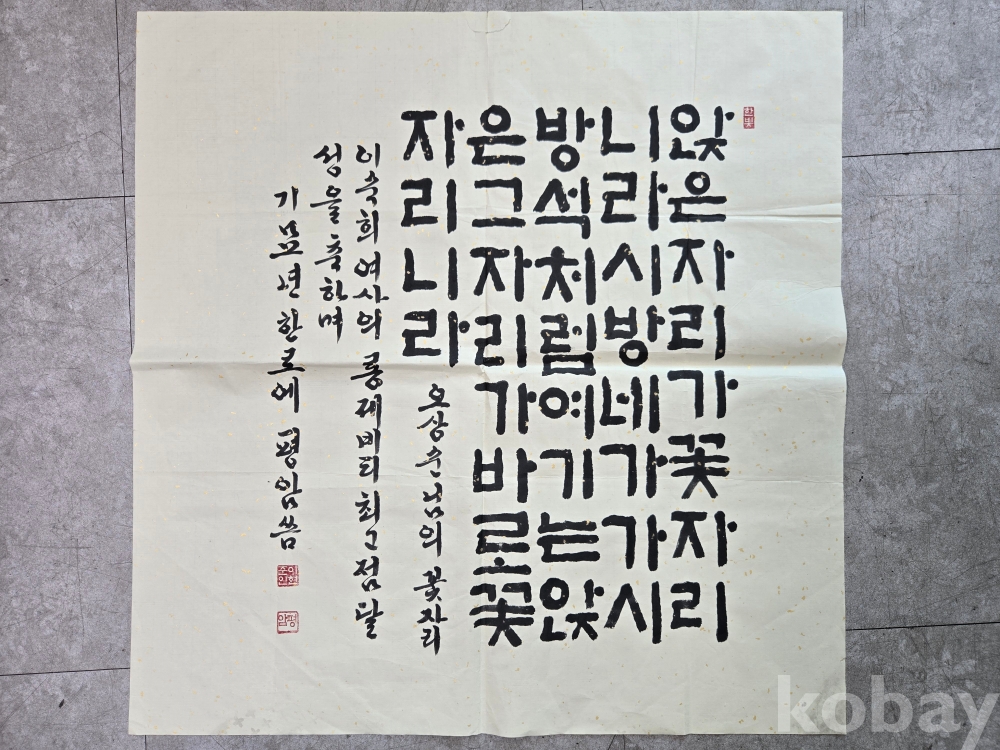 한빛
앉은자리가꽃자리
니라시방네가가시
방석처럼여기는앉
은그자리가바로꽃
자리니라
오상순님의 꽃자리
이숙희 여사의 최고점 달
성을 축하며
기묘년 한로에 평암 씀
평암